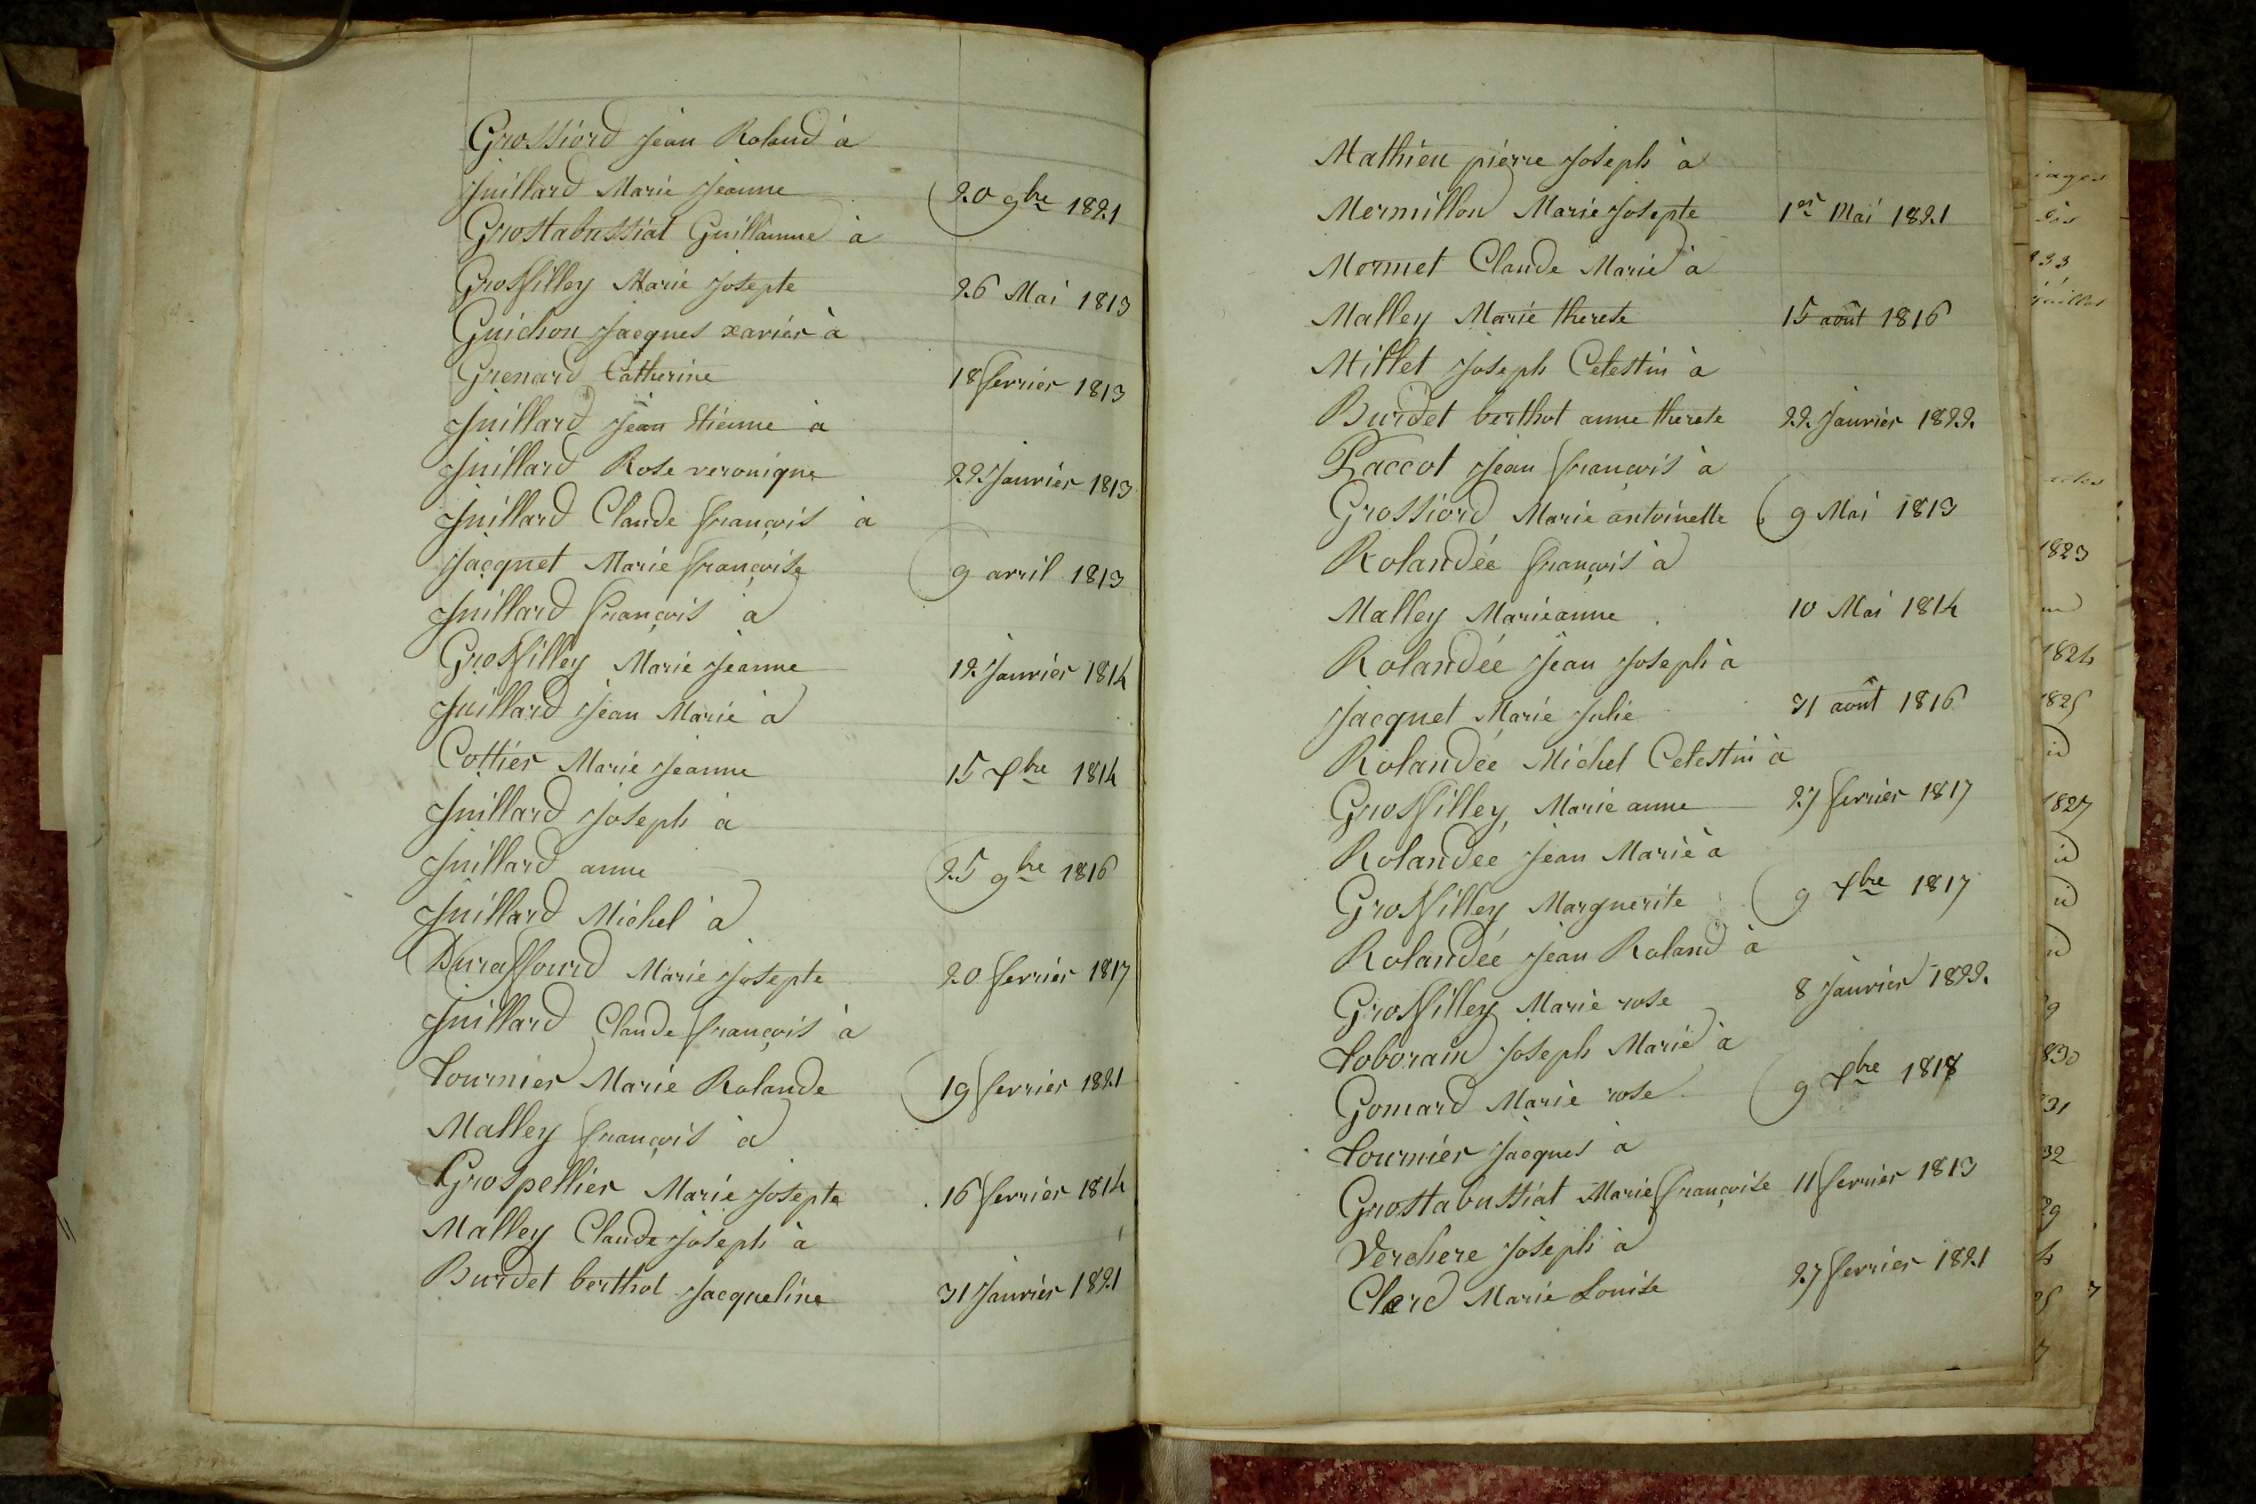 Grossiord Jean Roland à
Juillard Marie Jeanne 20 9bre 1821
Grostabussiat Guillaume à
Grossilley Marie Josepte 26 Mai 1813
Guichon Jacques xavier à
Grenard Catherine 18 fevrier 1813
Juillard Jean Etienne à
Juillard Rose veronique 22 Janvier 1813
Juillard Claude françois à
Jacquet Marie françoise 9 avril 1813
Juillard françois à
Grossilley Marie Jeanne 12 Janvier 1814
Juillard Jean Marie à
Cottier Marie Jeanne 15 Xbre 1814
Juillard Joseph à
Juillard anne 25 9bre 1816
Juillard Michel à
Duraffourd Marie Josepte 20 fevrier 1817
Juillard Claude françois à
Tournier Marie Rolande 19 fevrier 1821
Malley françois à
Grospellier Marie Josepte 16 fevrier 1814
Malley Claude Joseph à
Burdet berthot Jacqueline 31 Janvier 1821
Mathieu pierre Joseph à
Mermillon Marie Josepte 1er Mai 1821
Mormet Claude Marie à
Malley Marie therese 15 août 1816
Millet Joseph Celestin à
Burdet berthot anne therese 22 Janvier 1822
Paccot Jean françois à
Grossiord Marie antoinette 9 Mai 1813
Rolandée françois à
Malley Marieanne 10 Mai 1814
Rolandée Jean Joseph à
Jacquet Marie Julie 31 août 1816
Rolandée Michel Celestin à
Grossilley Marie anne 27 fevrier 1817
Rolandée Jean Marie à
Grossilley Marguerite 9 Xbre 1817
Rolandée Jean Roland à
Grossilley Marie rose 8 Janvier 1822
Toborain Joseph Marie à
Gomard Marie rose 9 Xbre 1818
Tournier Jacques à
Grostabussiat Marie françoise 11 fevrier 1813
Verchere Joseph à
Clerd Marie Louise 27 fevrier 1821
1823
1824
1825
1827